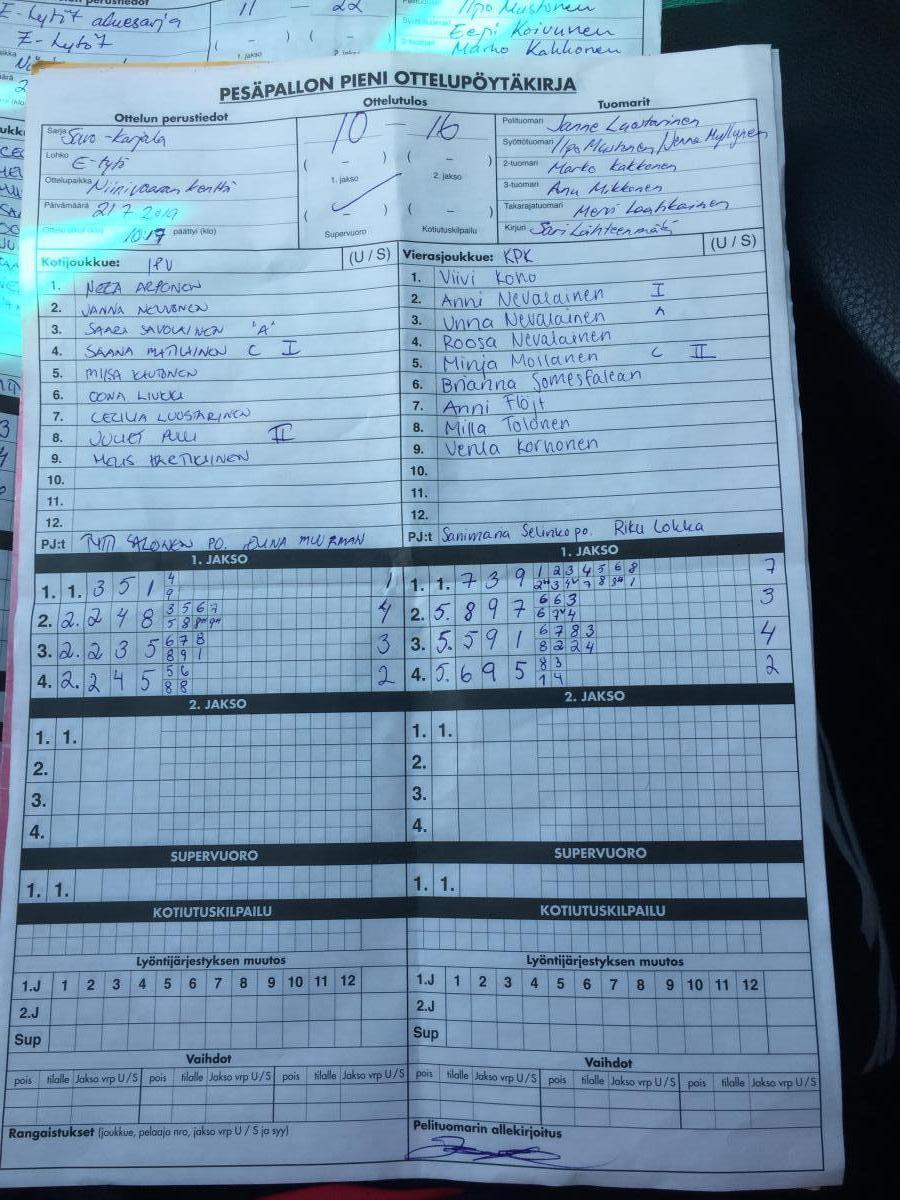 E-tytöt aluesarja
E-tytöt
11 - 22
Ilpo Mustonen
Eepi Koivunen
Marko Kakkonen
PESÄPALLON PIENI OTTELUPÖYTÄKIRJA
Ottelun perustiedot
Sarja Savo-Karjala
Lohko E-tytö
Ottelupaikka Niinivaaran kenttä
Päivämäärä 21 7 2019
10:17 päättyi (klo)
Ottelutulos
10 - 16
( - ) ( - )
1. jakso 2. jakso
( - ) ( - )
Supervuoro Kotiutuskilpailu
Tuomarit
Pelituomari Janne Luostarinen
Syöttötuomari Ilpo Mustonen/Jenna Myllynen
2-tuomari Marko Kakkonen
3-tuomari Anu Mikkonen
Takarajatuomari Mervi Laatikainen
Kirjuri Sari Lähteenmäki
Kotijoukkue: IPV (U / S)
1. NEEA ARPONEN
2. JANNA NEUVONEN
3. SAARA SAVOLAINEN "A"
4. SAANA MATILAINEN C I
5. MIISA KAUTONEN
6. OONA LIUKKU
7. CECILIA LUOSTARINEN
8. JULIET PULLI II
9. HARTIKAINEN
10.
11.
12.
PJ:t TYTTI SALONEN PO. MUURMAN
Vierasjoukkue: KPK (U / S)
1. Viivi Koho
2. Anni Nevalainen I
3. Unna Nevalainen A
4. Roosa Nevalainen
5. Minja Moilanen C II
6. Brianna Somesfalean
7. Anni Flöjt
8. Milla Tolonen
9. Venla Korhonen
10.
11.
12.
PJ:t Sanimaria Selinko po. Riku Lokka
1. JAKSO
1. 1. 3 5 1 4 1
9
2. 2. 2 4 8 3 5 6 7 4
5 8 8 9
3. 2. 2 3 5 6 7 8 3
8 9 1
4. 2. 2 4 5 5 6 2
8 8
1. JAKSO
1. 1. 7 3 9 1 2 3 4 5 6 8 7
2 3 4 7 8 9 1
2. 5. 8 9 7 6 6 3 3
6 7 4
3. 5. 5 9 1 6 7 8 3 4
8 2 2 4
4. 5. 6 9 5 8 3 2
1 4
2. JAKSO
1. 1.
2.
3.
4.
2. JAKSO
1. 1.
2.
3.
4.
SUPERVUORO
1. 1.
SUPERVUORO
1. 1.
KOTIUTUSKILPAILU
KOTIUTUSKILPAILU
Lyöntijärjestyksen muutos
1.J 1 2 3 4 5 6 7 8 9 10 11 12
2.J
Sup
Lyöntijärjestyksen muutos
1.J 1 2 3 4 5 6 7 8 9 10 11 12
2.J
Sup
Vaihdot
pois tilalle Jakso vrp U / S pois tilalle Jakso vrp U / S pois tilalle Jakso vrp U / S
Vaihdot
pois tilalle Jakso vrp U / S pois tilalle Jakso vrp U / S pois tilalle Jakso vrp U / S
Rangaistukset (joukkue, pelaaja nro, jakso vrp U / S ja syy)
Pelituomarin allekirjoitus